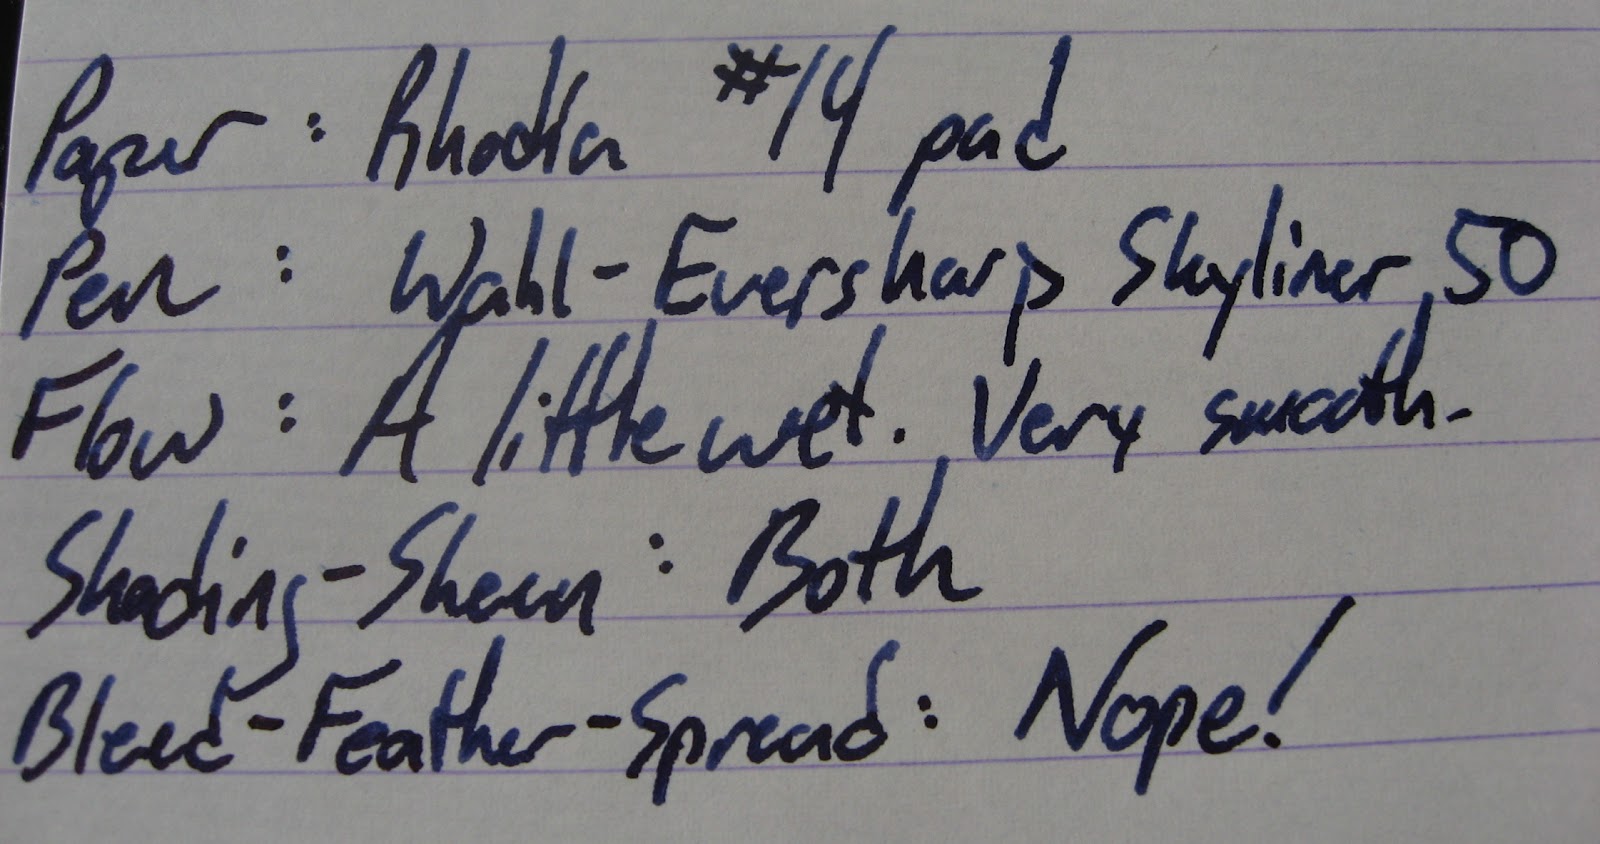 Paper : Rhodia #14 pad
Pen : Wahl-Eversharp Skyliner 50
Flow : A little wet. Very smooth.
Shading-Sheen : Both
Bleed-Feather-Spread : Nope!